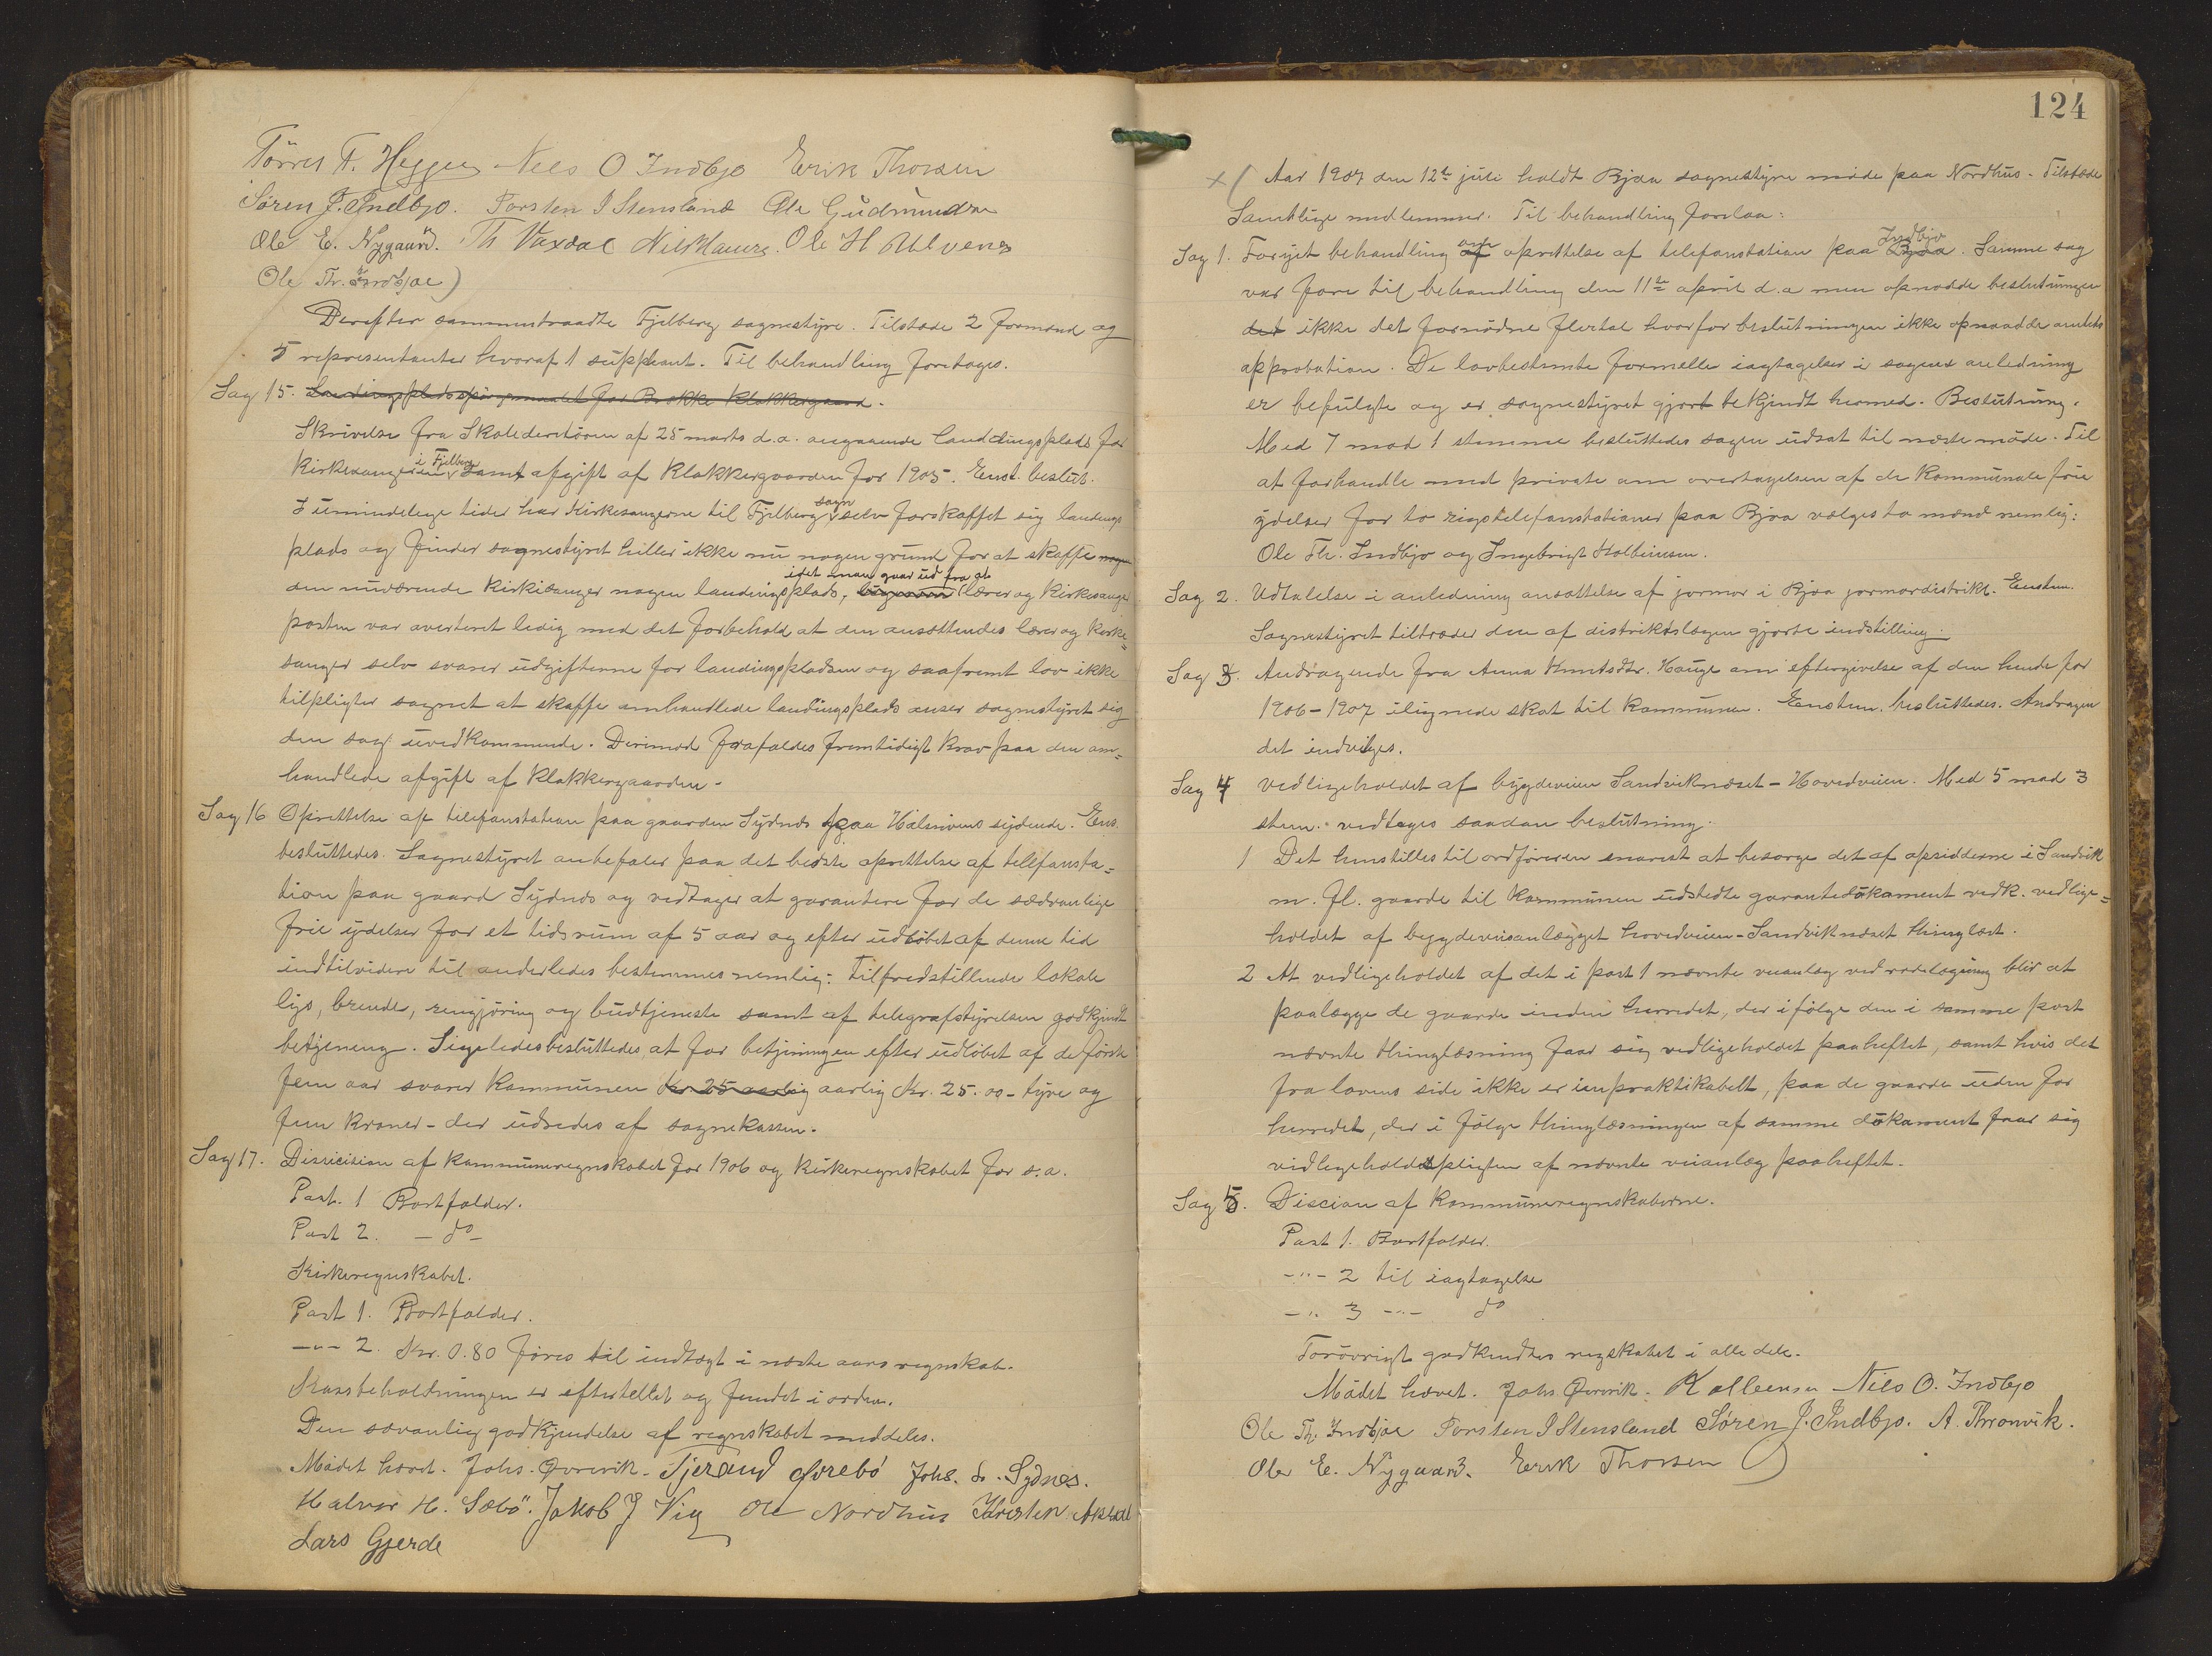 Törres T. Heggen Nels O Indbjo Erik Thorsen
Sören J. Indbjo. Torsten I Stensland Ole Gudmundsen
Ole E. Nygaard. Th Vaxdal Nils Hauge. Ole H Ulvenes
Ole Th. Indbjoe)
Derefter sammentraadte Fjelberg sognestyre. Tilstede 2 formænd og
5 repræsentanter hvoraf 1 suppleant. Til behandling foretoges.
Sag 15. Landingspladsspörgsmaalet for Brekke Klokkergaard.
Skrivelse fra Skoledirektören af 25 marts d.a. angaaende landdingsplads for
Kirkesangeren i Fjelberg samt afgift af Klokkergaarden for 1905. Enst. beslut.
I umindelige tider har Kirkesangerne til Fjelberg sogn selv forskaffet sig landings
plads og finder sognestyret heller ikke nu nogen grund for at skaffe nogen
den nuværende Kirkesanger nogen landingsplads, idet man gaar ud fra at lærer og Kirkesanger
posten var averteret ledig med det forbehold at den ansættendes lærer og kirke=
sanger selv svarer udgifterne for landingspladsen og saafremt lov ikke
tilpligter sognet at skaffe omhandlede landingsplads anser sognestyret sig
den sag uvedkommende. Derimod frafaldes fremtidigt krav paa den om=
handlede afgift af Klokkergaarden.-
Sag 16 Oprettelse af telefonstation paa gaarden Sydnes paa Halsnöens sydende. Ens.
besluttedes. Sognestyret anbefaler paa det bedste oprettelse af telefonsta=
tion paa gaard Sydnes og vedtager at garantere for de sædvanlige
frie ydelser for et tidsrum af 5 aar og efter udlöbet af denne tid
indtilvidere til anderledes bestemmes nemlig: tilfredstillende lokale
lys, brende, rengjöring og budtjeneste samt af telegrafstyrelsen godkjendt
betjening. Ligeledes besluttedes at for betjeningen efter udlöbet af de förste
fem aar svarer Kommunen Kr 25 aarlig aarlig Kr. 25.00 - tyve og
fem kroner - der udredes af sognekassen.
Sag 17. Discision af kommuneregnskabet for 1906 og Kirkeregnskabet for s.a.
Post. 1 Bortfalder.
Post 2. - do -
Kirkeregnskabet.
Post 1. Bortfalder.
-"- 2. Kr. 0.80 föres til indtægt i næste aars regnskab.
Kassebeholdningen er eftertellet og fundet i orden.
Den sævanlig godkjendelse af regnskabet meddeles.
Mödet hævet. Johs. Qvervik. Tjerand Förebö Johs. S. Sydnes.
Halvor H. Sæbö. Jakob J Vig Ole Nordhus Karsten Akrad
Lars Gjerde
124
x ( Aar 1907 den 12te juli holdt Bjoa sognestyre möde paa Nordhus. Tilstede
Samtlige medlemmer. Til behandling forelaa:
Sag 1. Fornyet behandling af om oprettelse af telefonstation paa Bjoa Indbjo. Samme sag
var fore til behandling den 11te april d.a men opnaadde beslutningen
det ikke det fornödne flertal hvorfor beslutningen ikke opnaadde amtets
approbation. De lovbestemte formelle iagtagelser i sagens anledning
er befulgte og er sognestyret gjort bekjendt hermed. Beslutning.
Med 7 mod 1 stemme besluttedes sagen udsat til næste möde. Til
at forhandle med private om overtagelsen af de kommunale frie
ydelser for to rigstelefonstationer paa Bjoa vælges to mænd nemlig:
Ole Th. Indbjo og Ingebrigt Kolbeinsen.
Sag 2. Udtalelse i anledning ansættelse af jormor i Bjoa jormordistrikt. Enstem.
Sognestyret tiltræder den af distriktslægen gjorte indstilling.
Sag 3. Andragende fra Anna Knutsdtr. Hauge om eftergivelse af den hende for
1906-1907 ilignede skat til kommunen. Enstem. besluttedes. Andragen
det indvilges.
Sag 4 Vedligeholdet af bygdeveien Sandviknæset - Hovedveien. Med 5 mod 3
stem. vedtoges saadan beslutning.
1 Det henstilles til ordföreren snarest at besörge det af opsidderne i Sandvik
m. fl. gaarde til kommunen udstedte garantedokument vedk. vedlige=
holdet af bygdeveisanlægget hovedveien-Sandviknæset thinglæst.
2 At vedligeholdet af det i post 1 nævnte veianlæg ved rodelægning blir at
paalægge de gaarde inden herredet, der ifölge den i samme post
nævnte thinglæsning faar sig vedligeholdet paaheftet, samt hvis det
fra lovens side ikke er impraktikabelt, paa de gaarde uden for
herredet, der i fölge thinglæsningen af samme dokument faar sig
vedligeholdspligten af nævnte veianlæg paaheftet.
Sag 5. Discion af Kommuneregnskaberne.
Post 1. Bortfalder.
-"- 2 til iagtagelse
-"- 3 -"- do
Forövrigt godkendtes regskabet i alle dele.
Mödet hævet. Johs. Qvervik. K Kolbeinsen Nils O. Indbjo
Ole Th. Indbjoe Torsten I Stensland Sören J. Indbjo. A. Thronvik.
Ole E. Nygaard. Erik Thorsen )